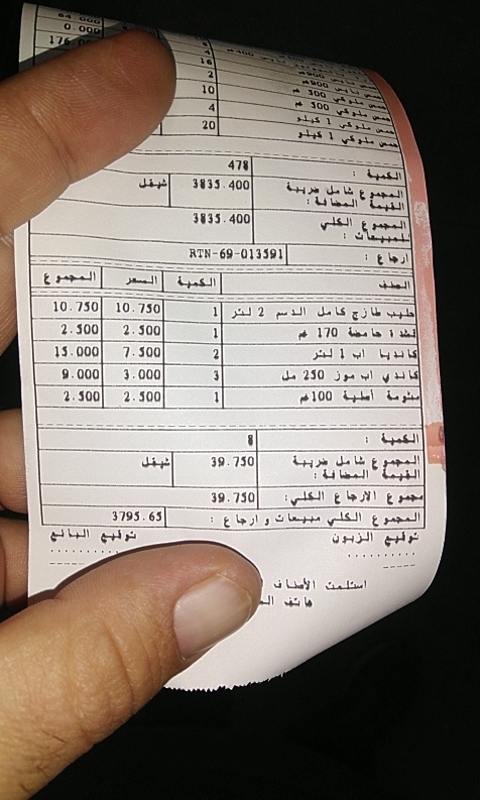 64.000
0.000
176.0
16
حمص بايس 900غم 2
حمص ملوكي 500 غم 10
حمص ملوكي 500 غم 4
حمص ملوكي 1 كيلو
حمص ملوكي 1 كيلو 20
الكمية : 478
المجموع شامل ضريبة القيمة المضافة : 3835.400 شيقل
المجموع الكلي للمبيعات : 3835.400
ارجاع : RTN-69-013591
الصنف الكمية السعر المجموع
حليب طازج كامل الدسم 2 لتر 1 10.750 10.750
قشدة حامضة 170 غم 1 2.500 2.500
كانديا اب 1 لتر 2 7.500 15.000
كاندي اب موز 250 مل 3 3.000 9.000
مثومة أصلية 100غم 1 2.500 2.500
الكمية : 8
المجموع شامل ضريبة القيمة المضافة : 39.750 شيقل
مجموع الارجاع الكلي: 39.750
المجموع الكلي مبيعات و ارجاع : 3795.65
توقيع الزبون توقيع البائع
استلمت الأصناف
هاتف